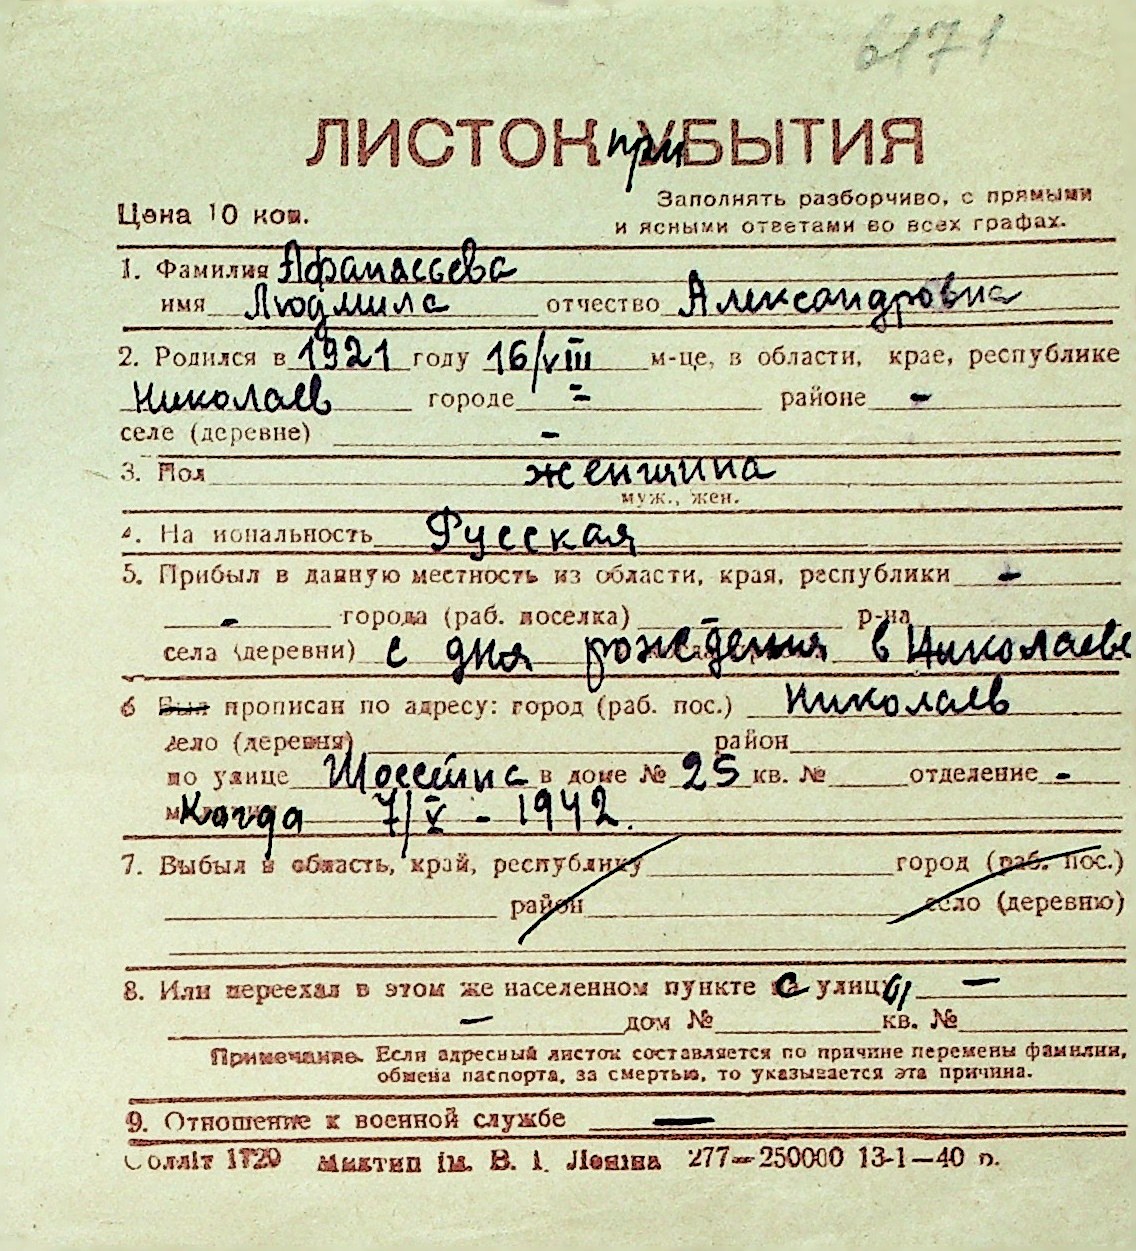 6171
ЛИСТОК при УБЫТИЯ
Цена 10 коп.
Заполнять разборчиво, с прямыми
и ясными ответами во всех графах.
1. Фамилия Афанасьева
имя Людмила отчество Александровна
2. Родился в 1921 году 16/VIII м-це, в области, крае, республике
Николаев городе - районе -
селе (деревне) -
3. Пол женщина
муж., жен.
4. На иональность Русская
5. Прибыл в данную местность из области, края, республики -
- города (раб. поселка) - р-на
села (деревни) с дня рождения в Николаеве
6 Был прописан по адресу: город (раб. пос.) Николаев
село (деревня) район
по улице в доме № 25 кв. № отделение -
Когда 7/X - 1942.
7. Выбыл в область, край, республику город (раб. пос.)
район село (деревню)
8. Или переехал в этом же населенном пункте с улицы -
- дом № кв. №
Примечание. Если адресный листок составляется по причине перемены фамилии,
обмена паспорта, за смертью, то указывается эта причина.
9. Отношение к военной службе —
Облліт 1720 Миктип ім. В. І. Леніна 277—250000 13-1—40 р.